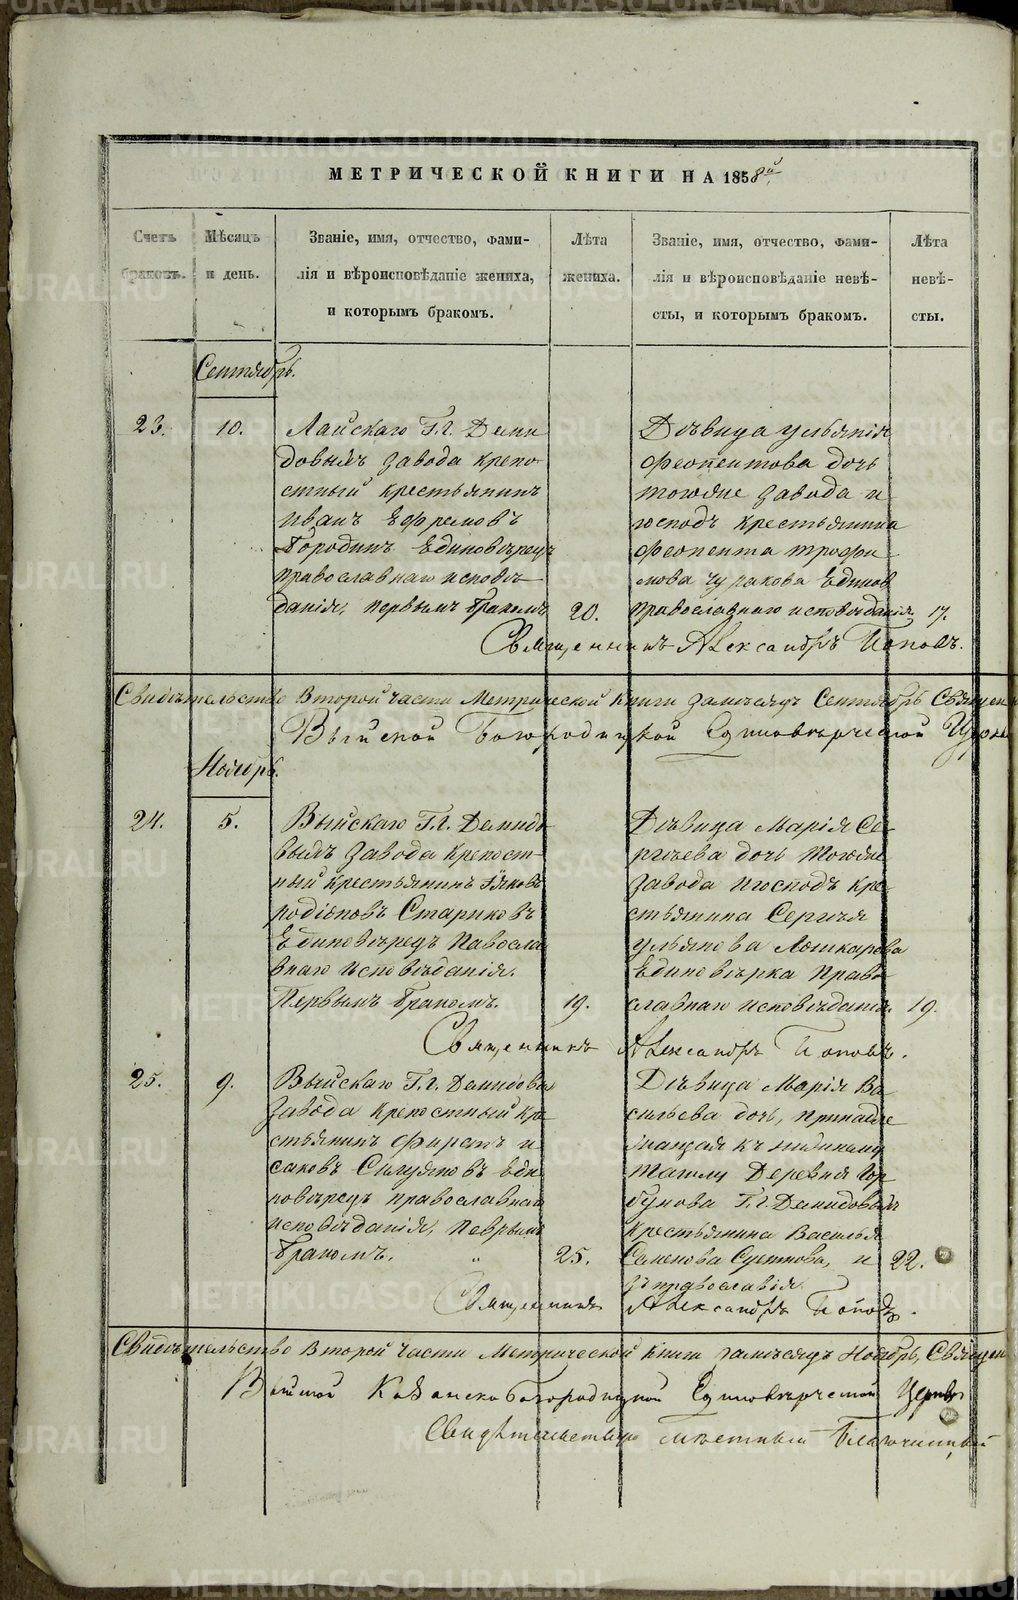 МЕТРИЧЕСКОЙ КНИГИ НА 1858й
Счетъ браковъ.
Мѣсяцъ и день.
Званіе, имя, отчество, фами-
лія и вѣроисповѣданіе жениха,
и которымъ бракомъ.
Лѣта жениха.
Званіе, имя, отчество, фами-
лія и вѣроисповѣданіе невѣ-
сты, и которымъ бракомъ.
Лѣта невѣ-
сты.
Сентябрь.
23.
10.
Лайскаго Г.г. Деми
довымъ завода крепо
стный крестьянинъ
Иванъ Ефремовъ
Бородинъ Единовѣрецъ
православнаго исповѣ
данія, первымъ бракомъ
20.
Дѣвица Ульянія
Феопентова дочь
тогоже завода и
господъ крестьянина
Феопента Трофи
мова Чуракова Единов
православнаго исповѣданія
17.
Священникъ Александръ Поповъ.
Свидѣтельство Второй части Метрической Книги за мѣсяцъ Сентябрь Священ
Выйской Богородицкой Единовѣрческой Церкв
Ноябрь.
24.
5.
Выйскаго Г.г. Демидо
вымъ завода крепост
ный крестьянинъ Яковъ
Родіоновъ Стариковъ
Единовѣрецъ Павосла
внаго исповѣданія.
Первымъ бракомъ.
19.
Дѣвица Марія Се
ргѣева дочь тогоже
завода и господъ кре
стьянина Сергѣя
Ульянова Лошкарева
Единовѣрка Право
славнаго исповѣданія.
19.
Священникъ Александръ Поповъ.
25.
9.
Выйскаго Г.г. Демидовы
завода крепостный кре
стьянинъ Фирсъ И
саковъ Еди
новѣрецъ православнаго
исповѣданія, певрымъ
бракомъ. "
25.
Дѣвица Марія Ва
сильева дочь, принадле
жащая къ нижнему
Тагилу Деревня Гор
бунова Г.г. Демидовымъ
крестьянина Василья
Семенова и
православія
22.
Священникъ Александръ Поповъ.
Свидѣтельство Второй Части Метрической Книги за мѣсяцъ Ноябрь, Священ
Выйской Казанско Богородицкой Единовѣрческой Церкви
мѣстный Благочинный
METRIKI.GASO-URAL.RU